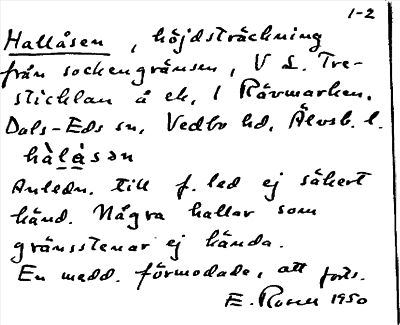 1-2
Hallåsen, höjdsträckning
från sockengränsen, V L. Tre-
sticklan å ek, i Rävmarken.
Dals-Eds sn, Vedbo hd, Älvsb. l.
hàlà̀sən
Anledn. till f. led ej säkert
känd. Några hallar som
gränsstenar ej kända.
En medd. förmodade, att forts.
E. Rosell 1950